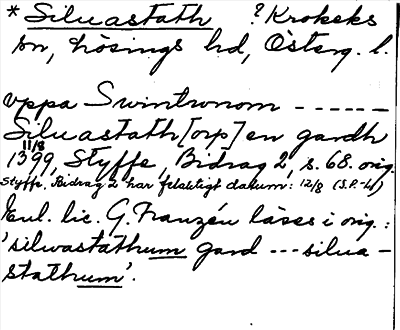 * Siluastath ? Krokeks
sn, Hösings hd, Österg. l.
vppa Swintwnom - - - - - -
Siluastath [orp] en gardh
11/8
1399, Styffe, Bidrag 2, s. 68. orig.
Styffe, Bidrag 2 har felaktigt datum: 12/8 (S.P-L.)
Enl. lic. G. Franzén läses i orig.:
'silwastathum gard --- silua-
stathum'.